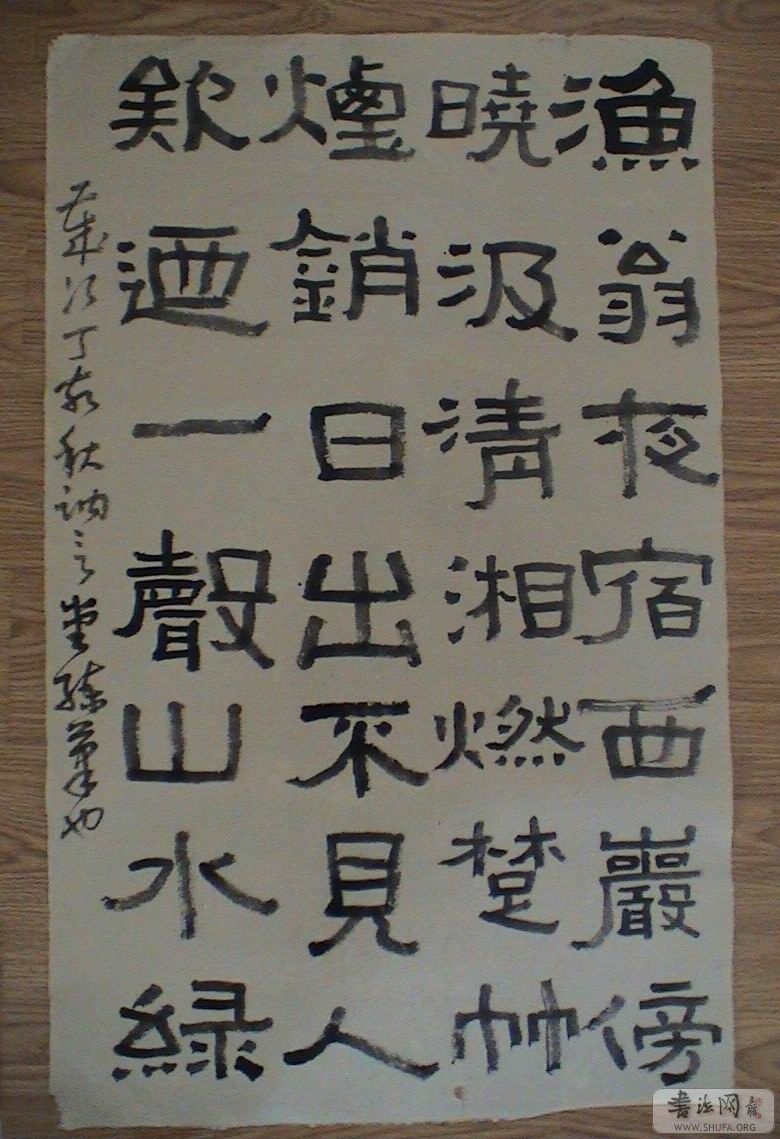 漁翁夜宿西巖傍
曉汲清湘燃楚竹
煙銷日出不見人
欸迺一聲山水綠
歲次丁亥秋訥言堂練筆也
書法网
WWW.SHUFA.ORG